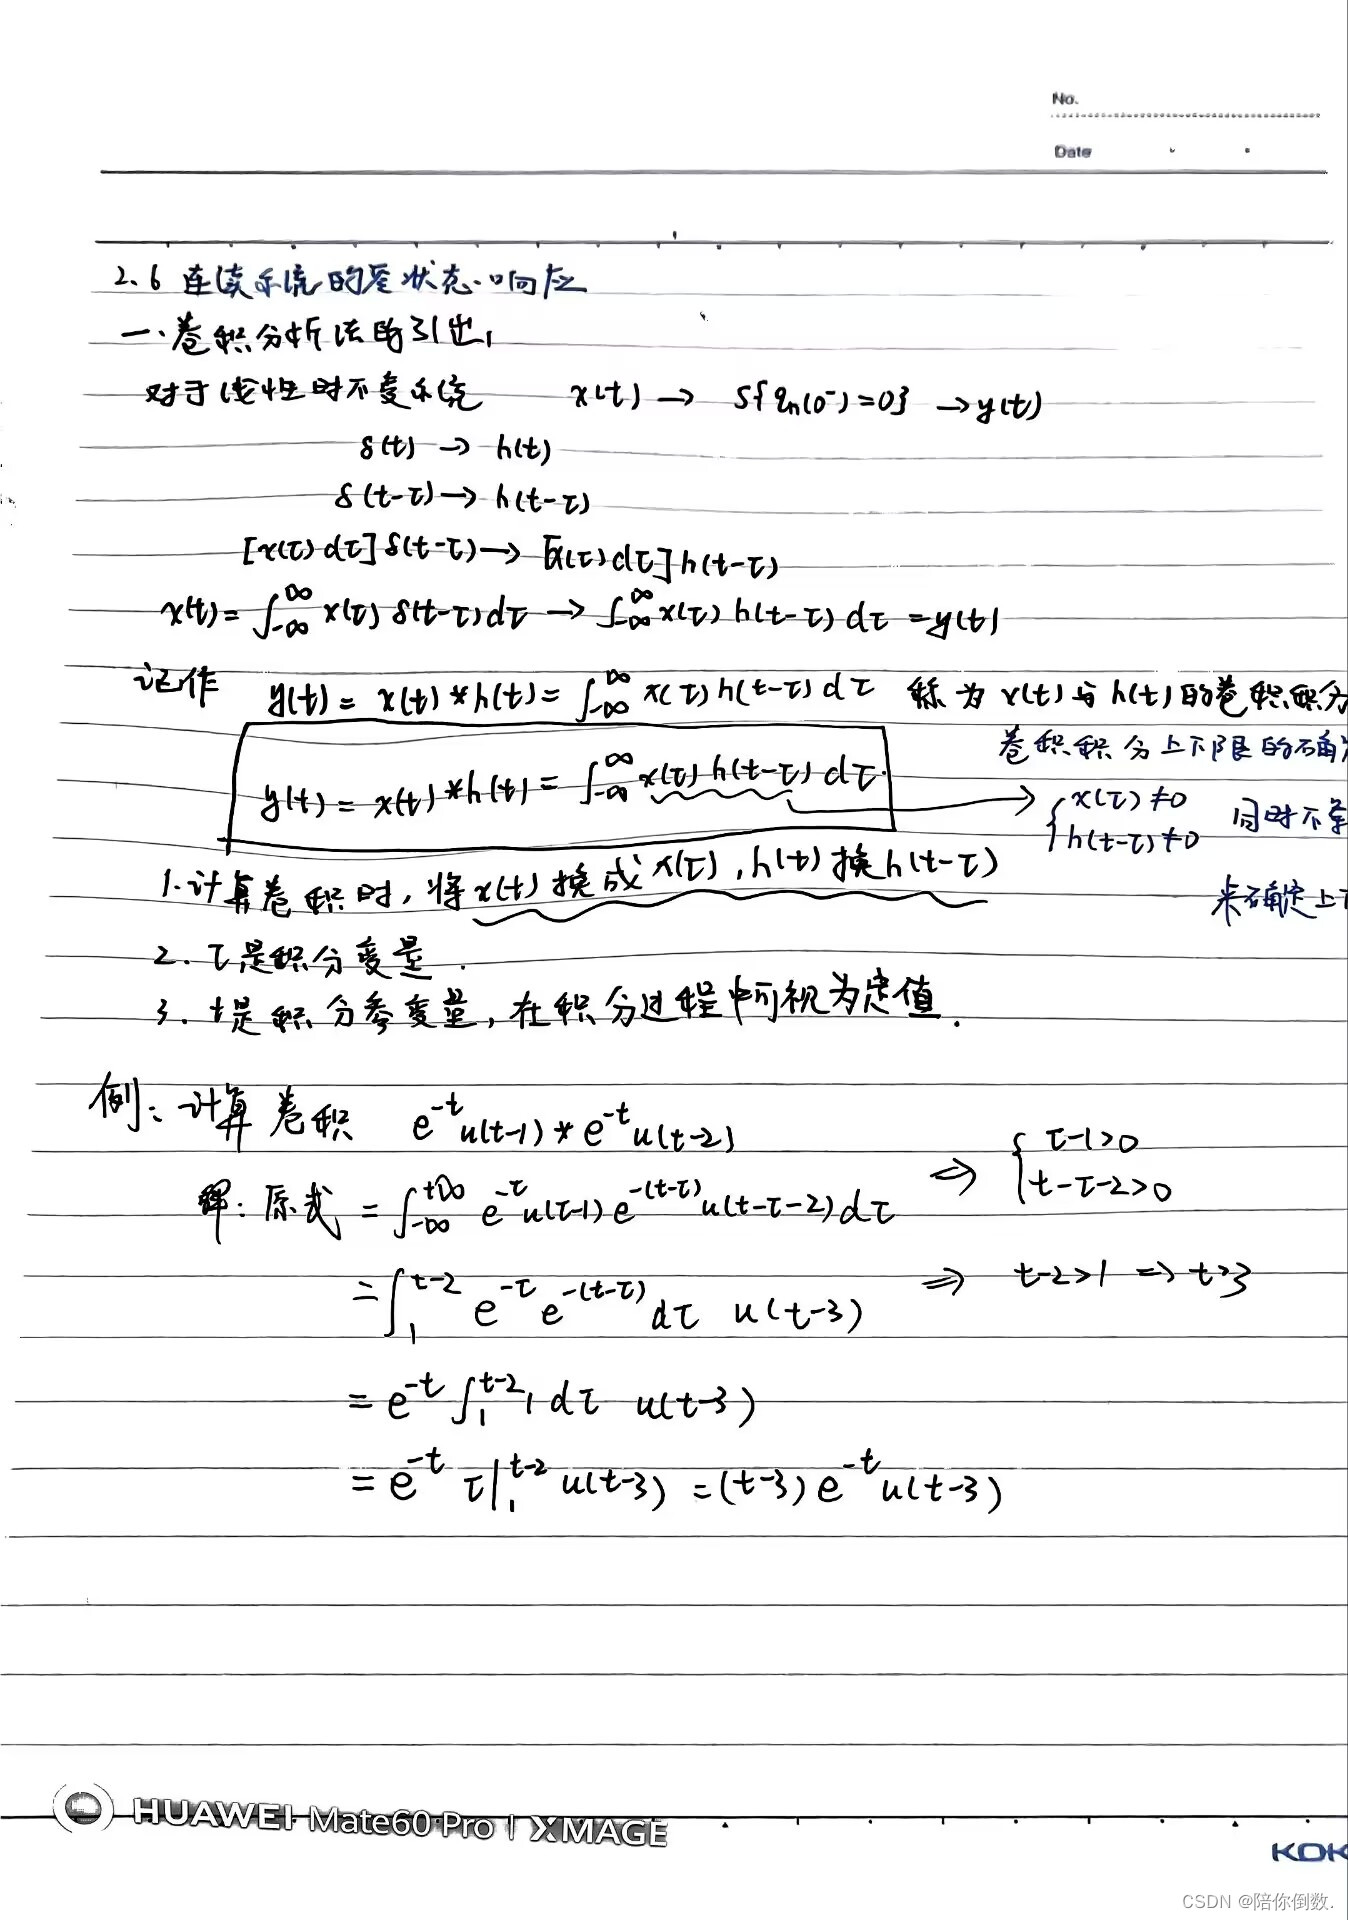 No.
Date
2.6 连续系统的零状态响应
一.卷积分析法的引出
对于线性时不变系统 x(t) → S{qn(0⁻)=0} → y(t)
δ(t) → h(t)
δ(t-τ) → h(t-τ)
[x(τ)dτ]δ(t-τ) → [x(τ)dτ]h(t-τ)
x(t)=∫_{-∞}^{∞} x(τ)δ(t-τ)dτ → ∫_{-∞}^{∞} x(τ)h(t-τ)dτ = y(t)
记作 y(t) = x(t)*h(t) = ∫_{-∞}^{∞} x(τ)h(t-τ)dτ 称为 x(t)与h(t)的卷积积分
卷积积分上下限的确
y(t) = x(t)*h(t) = ∫_{-∞}^{∞} x(τ)h(t-τ)dτ
{x(τ)≠0
h(t-τ)≠0 同时不
来确定上
1.计算卷积时,将x(t)换成x(τ),h(t)换h(t-τ)
2.τ是积分变量.
3.t是积分参变量,在积分过程中可视为定值.
例:计算卷积 e^{-t}u(t-1)*e^{-t}u(t-2)
解:原式 = ∫_{-∞}^{+∞} e^{-τ}u(τ-1)e^{-(t-τ)}u(t-τ-2)dτ ⇒ {τ-1>0
t-τ-2>0
=∫_{1}^{t-2} e^{-τ}e^{-(t-τ)}dτ u(t-3) ⇒ t-2>1 ⇒ t>3
= e^{-t}∫_{1}^{t-2} 1dτ u(t-3)
= e^{-t} τ|_{1}^{t-2} u(t-3) = (t-3)e^{-t}u(t-3)
HUAWEI Mate60 Pro | XMAGE
KOK
CSDN @陪你倒数.